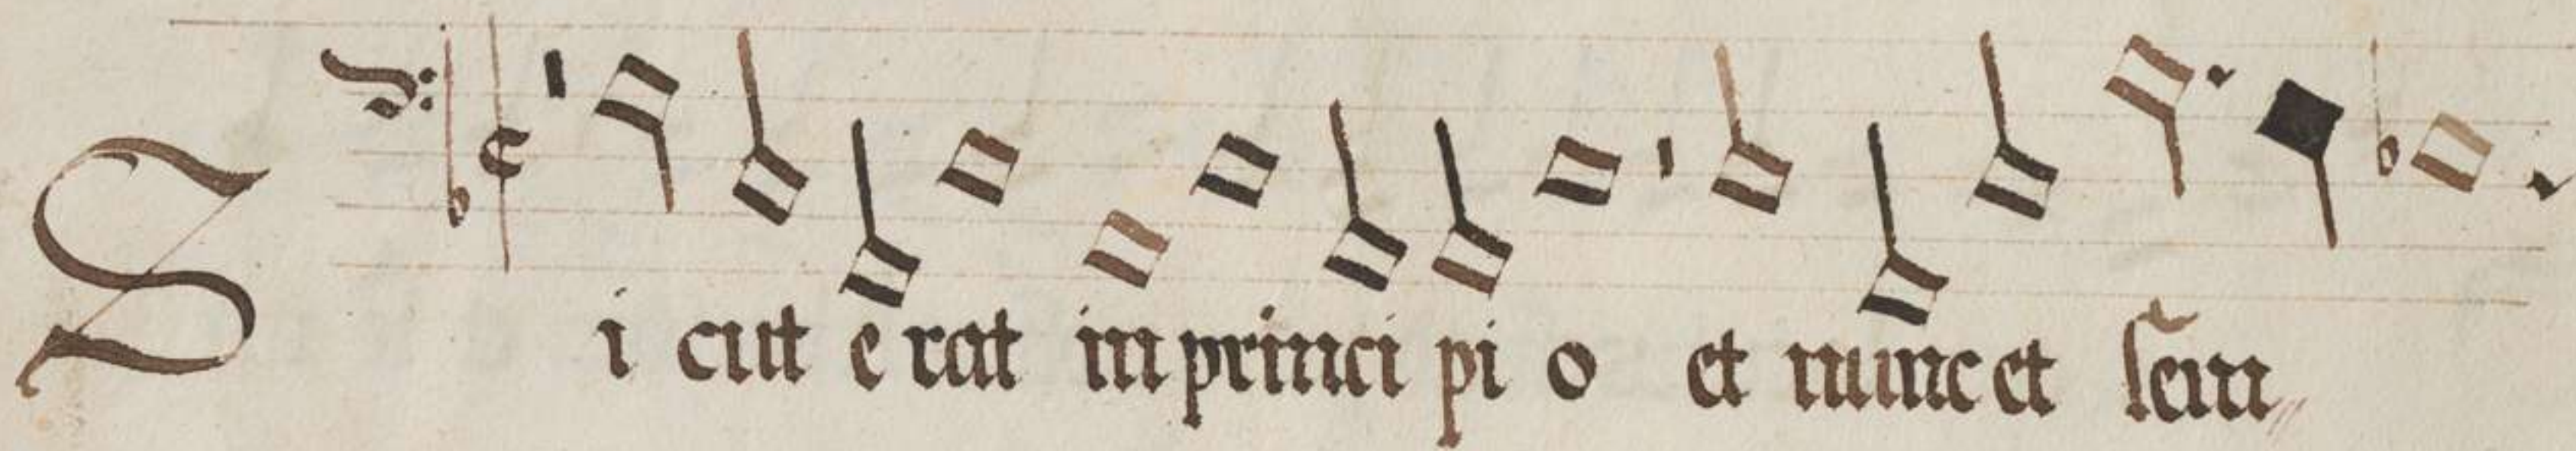 Si cut e rat in princi pi o et nunc et sem